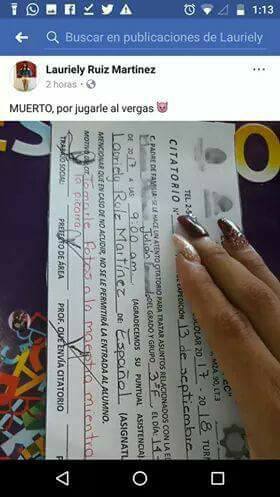 1:13
Buscar en publicaciones de Lauriely
Lauriely Ruiz Martinez
2 horas
MUERTO, por jugarle al vergas 😈
TEL. 2-5
CITATORIO N°
MZA. 90, LT.3
ESCOLAR 2017 - 2018 TURN
EXPEDICIÓN 13 de septiembre
PADRE DE FAMILIA: SE LE HACE EN ATENTO CITATORIO PARA TRATAR ASUNTOS RELACIONADOS CON EL
Julián DEL GRADO Y GRUPO 3° EL DÍA: 14
DE 2017 A LAS 9:00 am (AGRADECEMOS SU PUNTUAL ASISTENCIA)
Lauriely Ruiz Martínez DE Español (ASIGNAT
MENCIONAR QUE EN CASO DE NO ACUDIR, NO SE LE PERMITIRÁ LA ENTRADA AL ALUMNO.
MOTIVO DE CIT. Tomarle fotos a la maestra mientra
la picorra
TRABAJO SOCIAL PREFECTO DE ÁREA PROF. QUE ENVÍA CITATORIO